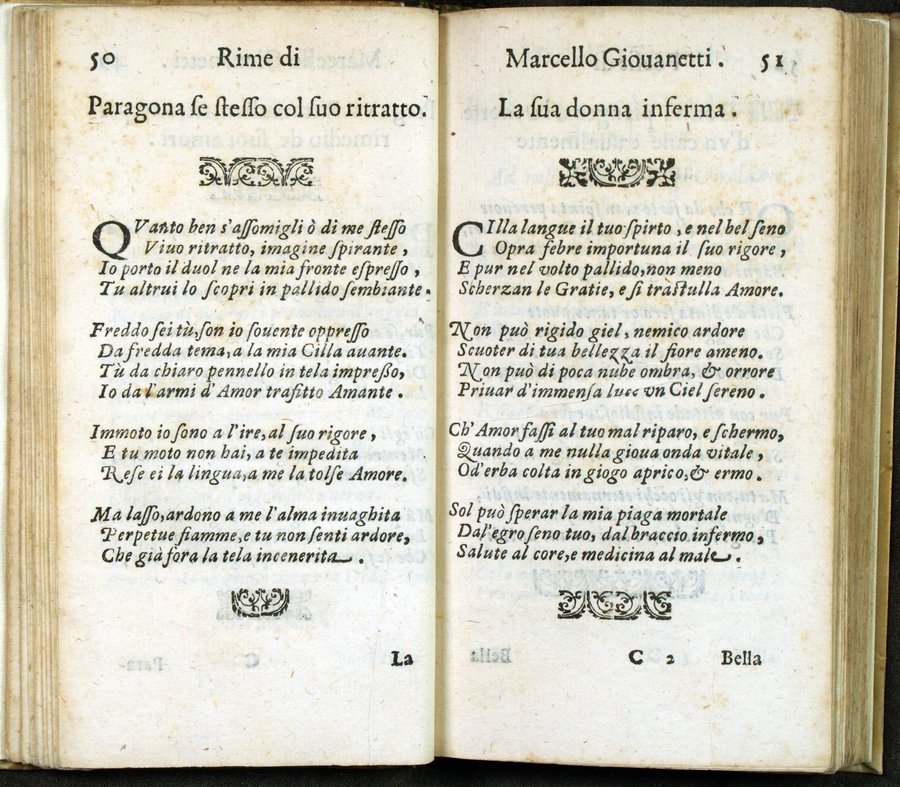 50 Rime di
Paragona se stesso col suo ritratto.
QVanto ben s'assomigli ò di me stesso
Viuo ritratto, imagine spirante,
Io porto il duol ne la mia fronte espresso,
Tu altrui lo scopri in pallido sembiante.
Freddo sei tù, son io souente oppresso
Da fredda tema, a la mia Cilla auante.
Tù da chiaro pennello in tela impresso,
Io da l'armi d'Amor trafitto Amante.
Immoto io sono a l'ire, al suo rigore,
E tu moto non hai, a te impedita
Rese ei la lingua, a me la tolse Amore.
Ma lasso, ardono a me l'alma inuaghita
Perpetue fiamme, e tu non senti ardore,
Che già fora la tela incenerita.
La
Marcello Giouanetti. 51
La sua donna inferma.
CIlla langue il tuo spirto, e nel bel seno
Opra febre importuna il suo rigore,
E pur nel volto pallido, non meno
Scherzan le Gratie, e si tràstulla Amore.
Non può rigido giel, nemico ardore
Scuoter di tua bellezza il fiore ameno.
Non può di poca nube ombra, & orrore
Priuar d'immensa luce vn Ciel sereno.
Ch' Amor fassi al tuo mal riparo, e schermo,
Quando a me nulla gioua onda vitale,
Od'erba colta in giogo aprico, & ermo.
Sol può sperar la mia piaga mortale
Dal'egro seno tuo, dal braccio infermo,
Salute al core, e medicina al male.
C 2 Bella